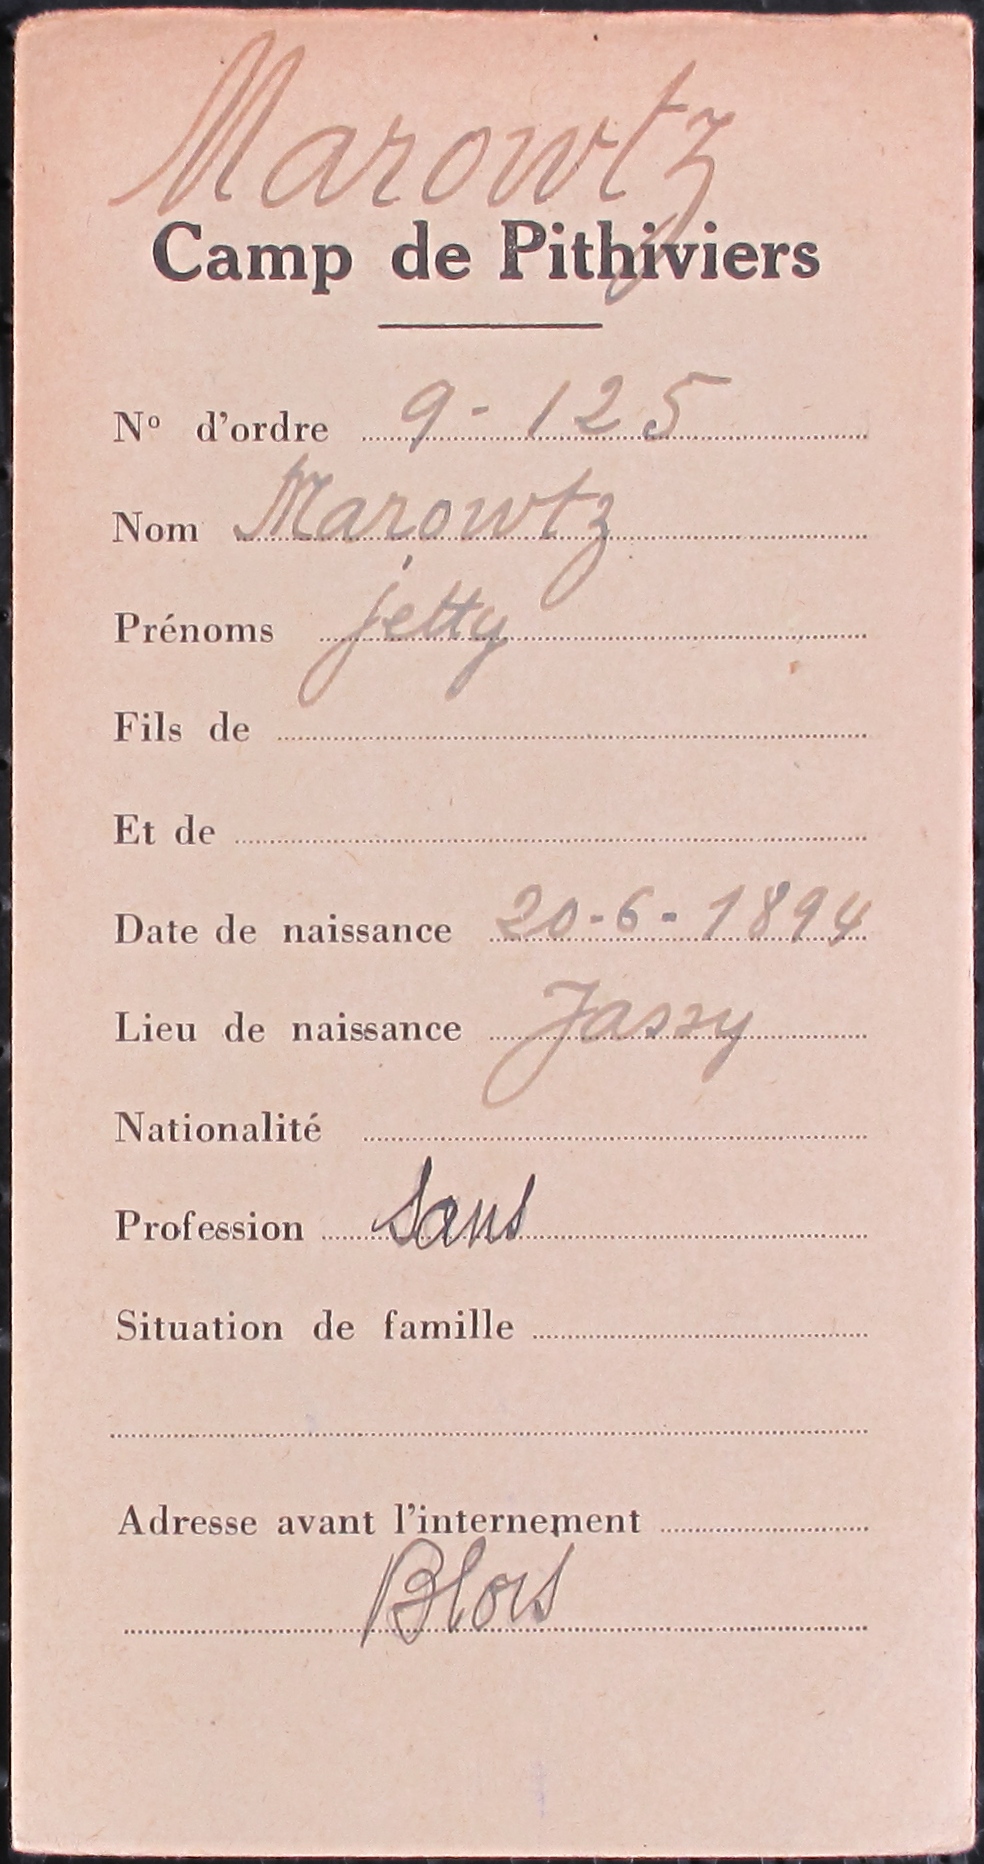 Marowtz
Camp de Pithiviers
No d'ordre 9-125
Nom Marowtz
Prénoms jetty
Fils de
Et de
Date de naissance 20-6-1894
Lieu de naissance Jassy
Nationalité
Profession Sans
Situation de famille
Adresse avant l'internement
Blois